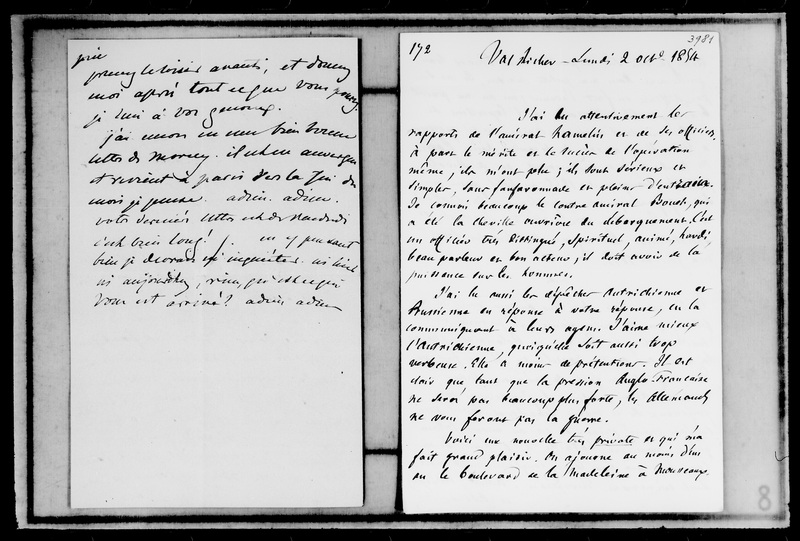 prenez le loisir avant, et donnez
moi après tout ce que vous pourrez.
je suis à vos genoux.
j'ai encore eu une bien bonne
lettre de Morny. il est en auvergne
et revient à paris vers la fin du
mois je pense. adieu. adieu.
votre dernière lettre est de vendredi
c'est bien long! en y pensant
bien je devrais m'inquiéter. ni hier
ni aujourd'hui, rien, qu'est-ce qui
vous est arrivé? adieu adieu
172
3981
Val Richer - Lundi 2 octe 1854
J'ai lu attentivement les
rapports de l'amiral Hamelin et de ses officiers.
à part le mérite et le succès de l'opération
même, ils m'ont plu ; ils sont sérieux et
simples, sans fanfaronnade et pleins d'entrain.
Je connois beaucoup le contre amiral Bouet, qui
a été la cheville ouvrière du débarquement. C'est
un officier très distingué, spirituel, animé, hardi,
beau parleur et bon acteur ; il doit avoir de la
puissance sur les hommes.
J'ai lu aussi les dépêches Autrichienne et
Prussienne en réponse à votre réponse, en la
communiquant à leurs agens. J'aime mieux
l'Autrichienne, quoiqu'elle soit aussi trop
verbeuse. Elle a moins de prétentions. Il est
clair que, tant que la pression Anglo-Française
ne sera pas beaucoup plus forte, les Allemands
ne vous feront pas la guerre.
Voici une nouvelle très privée et qui m'a
fait grand plaisir. On ajourne au moins d'un
an le boulevard de la Madeleine à Mousseaux.
8